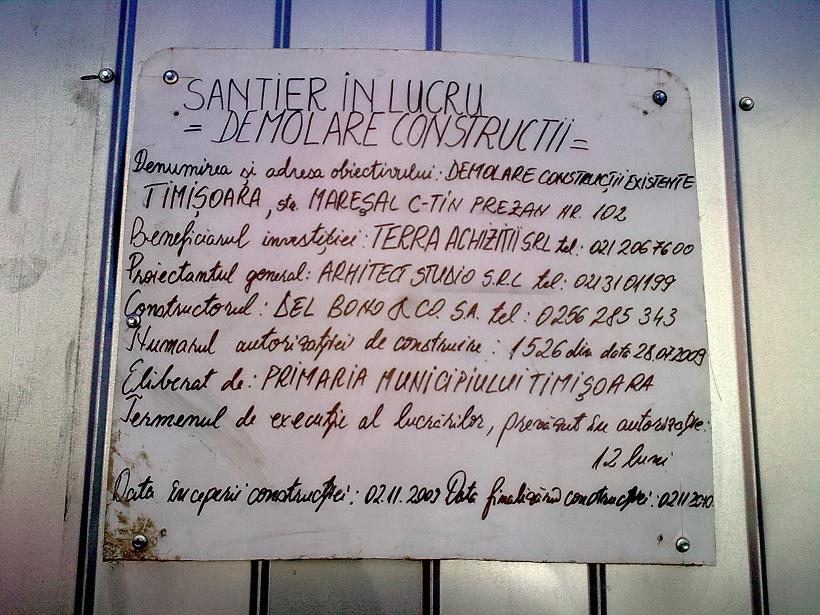 ȘANTIER ÎN LUCRU
= DEMOLARE CONSTRUCTII =
Denumirea și adresa obiectivului: DEMOLARE CONSTRUCȚII EXISTENTE
TIMIȘOARA, str. MAREȘAL C-TIN PREZAN NR. 102
Beneficiarul investiției: TERRA ACHIZITII S.R.L tel: 021 206 76 00
Proiectantul general: ARHITECT STUDIO S.R.L tel: 0213101199
Constructorul: DEL BONO & CO. S.A. tel: 0256 285 343
Numarul autorizației de construire: 1526 din data 28.07.2009
Eliberat de: PRIMARIA MUNICIPIULUI TIMIȘOARA
Termenul de execuție al lucrărilor, prevăzut în autorizație:
12 luni
Data începerii construcției: 02.11.2009 Data finalizării construcției: 02.11.2010